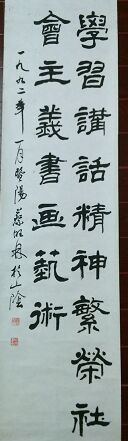 學習講話精神繁榮社
會主義書画藝術
一九九二年一月暨陽
於山陰